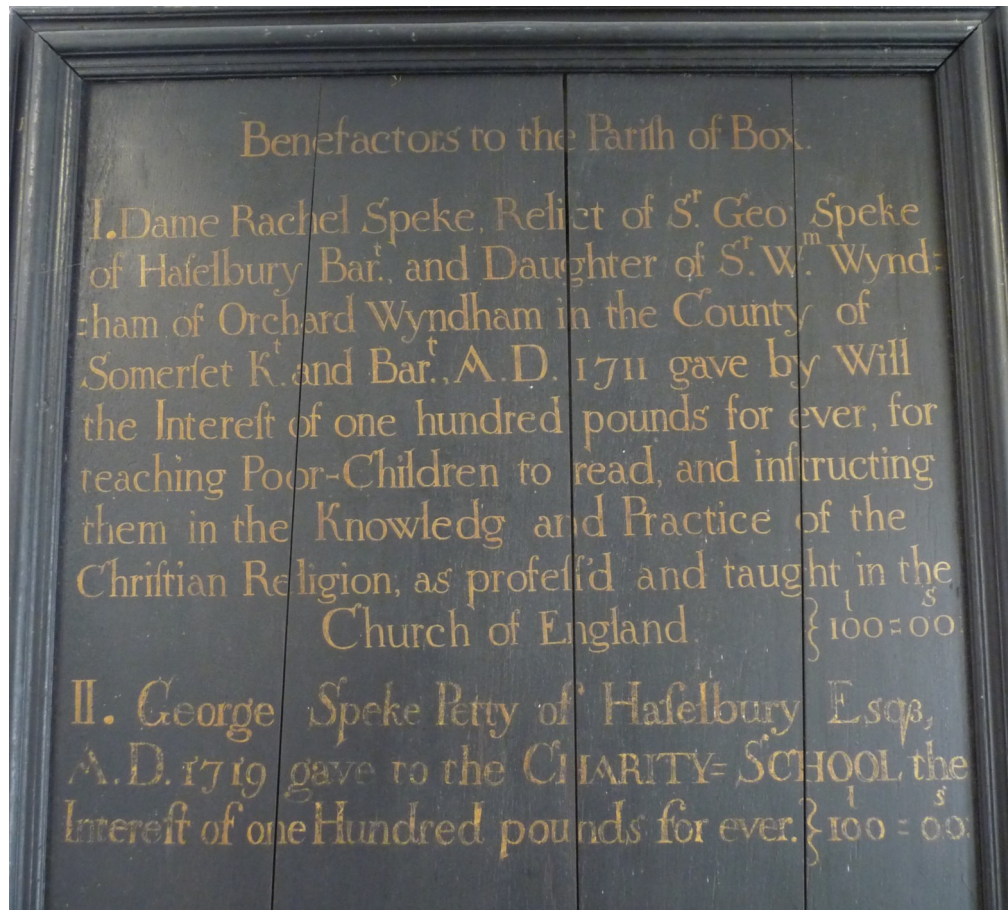 Benefactors to the Pariſh of Box.
I. Dame Rachel Speke, Relict of Sʳ. Geo Speke
of Haſelbury Barᵗ., and Daughter of Sʳ. Wᵐ. Wynd=
=ham of Orchard Wyndham in the County of
Somerſet Kᵗ. and Barᵗ., A.D. 1711 gave by Will
the Intereſt of one hundred pounds for ever, for
teaching Poor-Children to read, and inſtructing
them in the Knowledg and Practice of the
Chriſtian Religion, as profeſſ'd and taught in the
Church of England. } 100ˡ = 00ˢ
II. George Speke Petty of Haſelbury Esqꝫ,
A.D. 1719 gave to the CHARITY= SCHOOL the
Intereſt of one Hundred pounds for ever. } 100ˡ = 00ˢ.